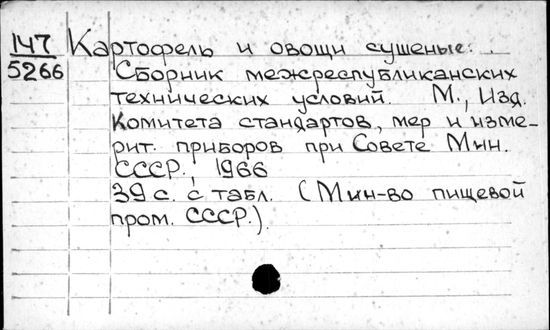 147 Картофель и овощи сушеные.
5266 Сборник межреспубликанских
технических условий. М., Изд.
Комитета стандартов, мер и изме-
рит. приборов при Совете Мин.
СССР, 1966
39 с. с табл. (Мин-во пищевой
пром. СССР.).